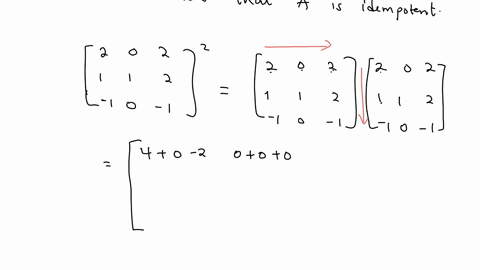 that A is idempotent.
[2 0 2; 1 1 2; -1 0 -1]² = [2 0 2; 1 1 2; -1 0 -1] [2 0 2; 1 1 2; -1 0 -1]
= [4+0-2 0+0+0